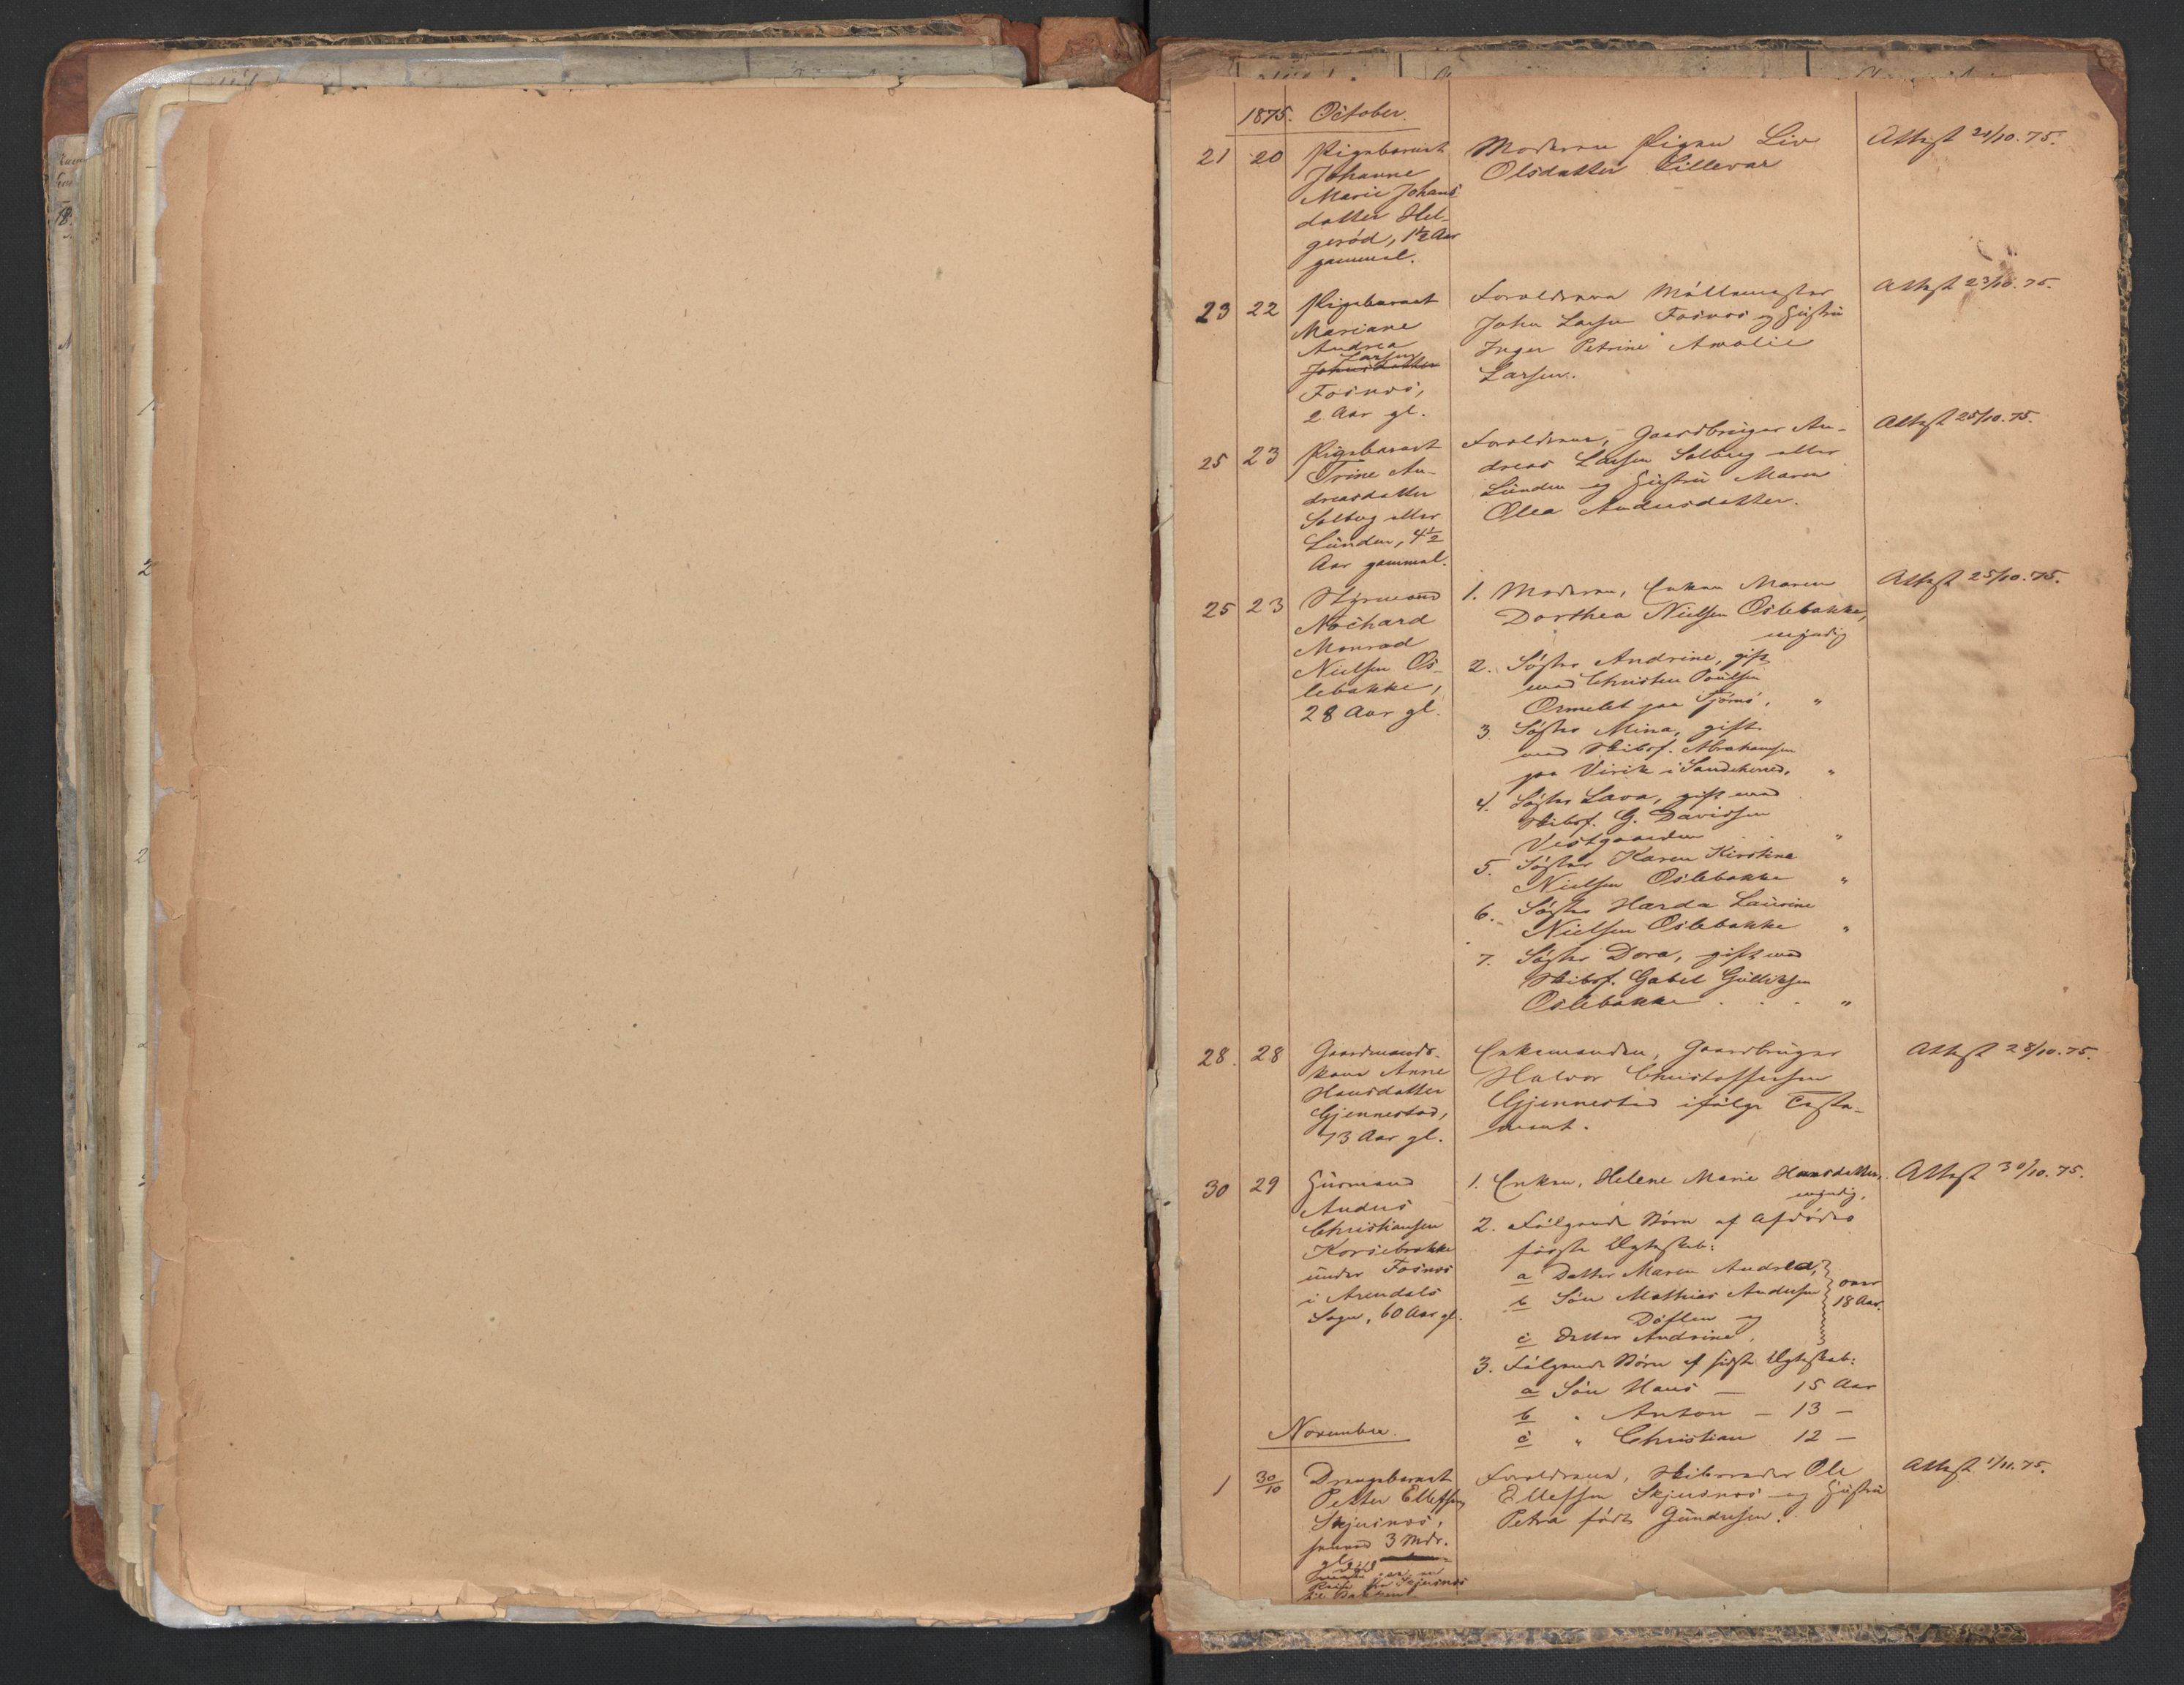 1875. October.
21 20 Pigebarnet Moderen Pigen Liv Attest 21/10. 75.
Johanne Olsdatter Lillevar
Marie Johans
datter Hel-
gerød, 1½ Aar
gammel.
23 22 Pigebarnet Forældrene Møllemester Attest 23/10. 75.
Mariane John Larsen Fosnes og Hustru
Andrea Inger Petrine Amalie
Larsen Larsen.
Johnsdatter
Fosnes,
2 Aar gl.
25 23 Pigebarnet Forældrene, Gaardbruger An- Attest 25/10. 75.
Trine An- dreas Larsen Solberg eller
dreasdatter Lunden og Hustru Maren
Solberg eller Olea Andersdatter.
Lunden, 4½
Aar gammel.
25 23 Styrmand 1. Moderen, Enken Maren Attest 25/10. 75.
Nochard Dorthea Nielsen Oslebakke,
Monrad myndig
Nielsen Os- 2. Søster Andrine, gift
lebakke, med Christen Poulsen
28 Aar gl. Ormelet paa Tjømø, "
3. Søster Mina, gift
med Skibsf. Abrahamsen
paa Virik i Sandeherred, "
4. Søster Lava, gift med
Skibsf. G. Davidsen
Vestgaarden . . "
5. Søster Karen Kirstine
Nielsen Oslebakke "
6. Søster Harda Laurine
Nielsen Oslebakke "
7. Søster Dora, gift med
Skibsf. Gabel Gulliksen
Oslebakke . . . "
28. 28 Gaardmands- Enkemanden, Gaardbruger Attest 28/10. 75.
kone Anne Halvor Christoffersen
Hansdatter Gjennestad ifølge Testa-
Gjennestad, ment.
73 Aar gl.
30 29 Husmand 1. Enken, Helene Marie Hansdatter, Attest 30/10. 75.
Anders myndig,
Christiansen 2. Følgende Børn af Afdødes
Korsebrekke første Ægteskab:
under Fosnes a Datter Maren Andrea, over
i Arendals b Søn Mathias Andersen 18 Aar.
Sogn, 60 Aar gl. og
c Datter Andrine.
3. Følgende Børn af sidste Ægteskab:
a Søn Hans — 15 Aar
b " Anton — 13 —
c " Christian 12 —
November.
1 30/10 Drengebarnet Forældrene, Skibsreder Ole Attest 1/11. 75.
Petter Ellefsen Ellefsen Skjersnes og Hustru
Skjersnes, Petra født Gundersen.
3 Mdr.
gl.
fra Skjersnes
til